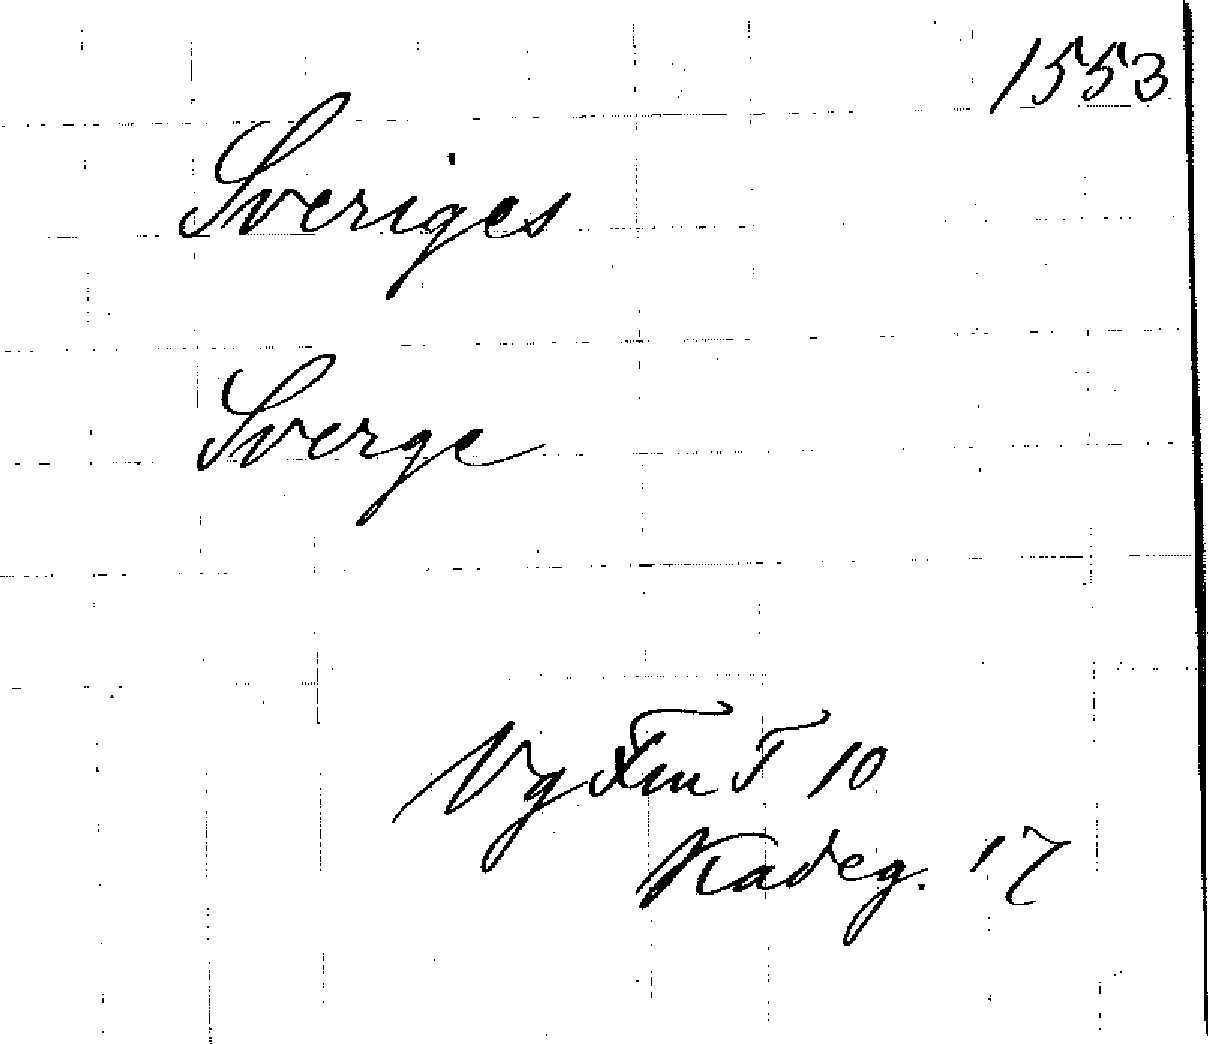 1553
Sveriges
Sverge
Vg Fm T 10
Kadeg. 17